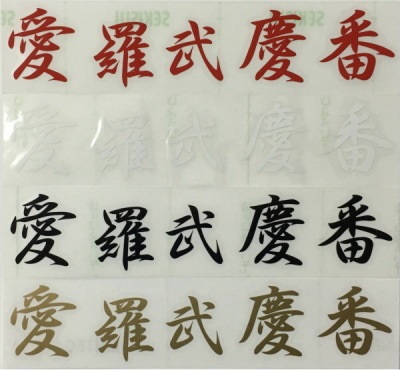 SEKISUI
愛羅武慶番
愛羅武慶番
愛羅武慶番
愛羅武慶番